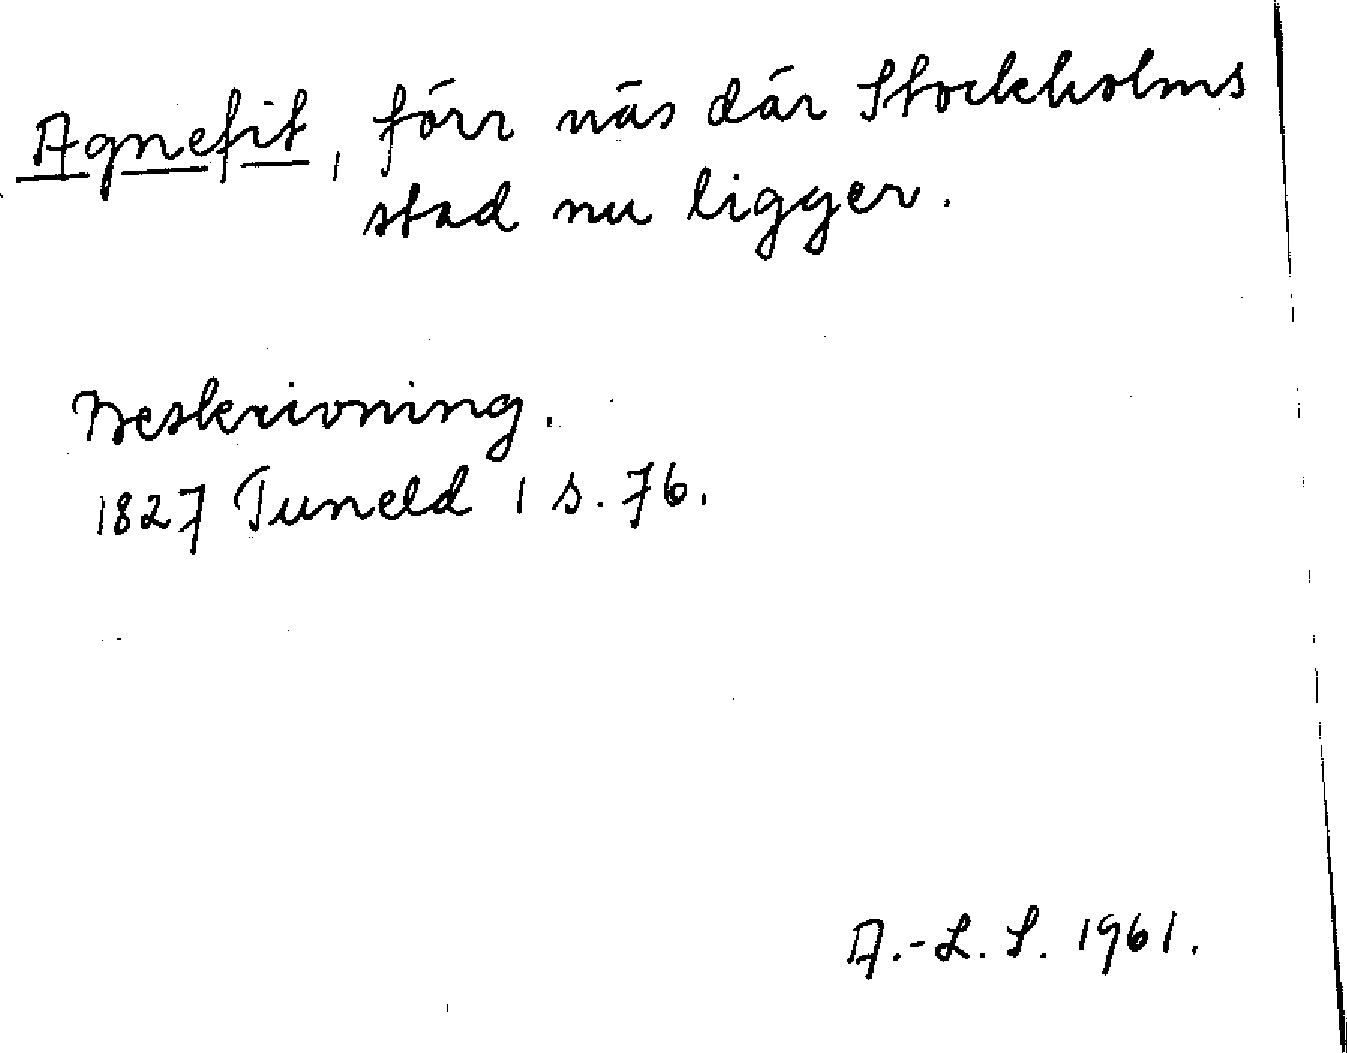 Agnefit, förr näs där Stockholms
stad nu ligger.
Beskrivning.
1827 Tuneld 1 s. 76.
A.-L. S. 1961.